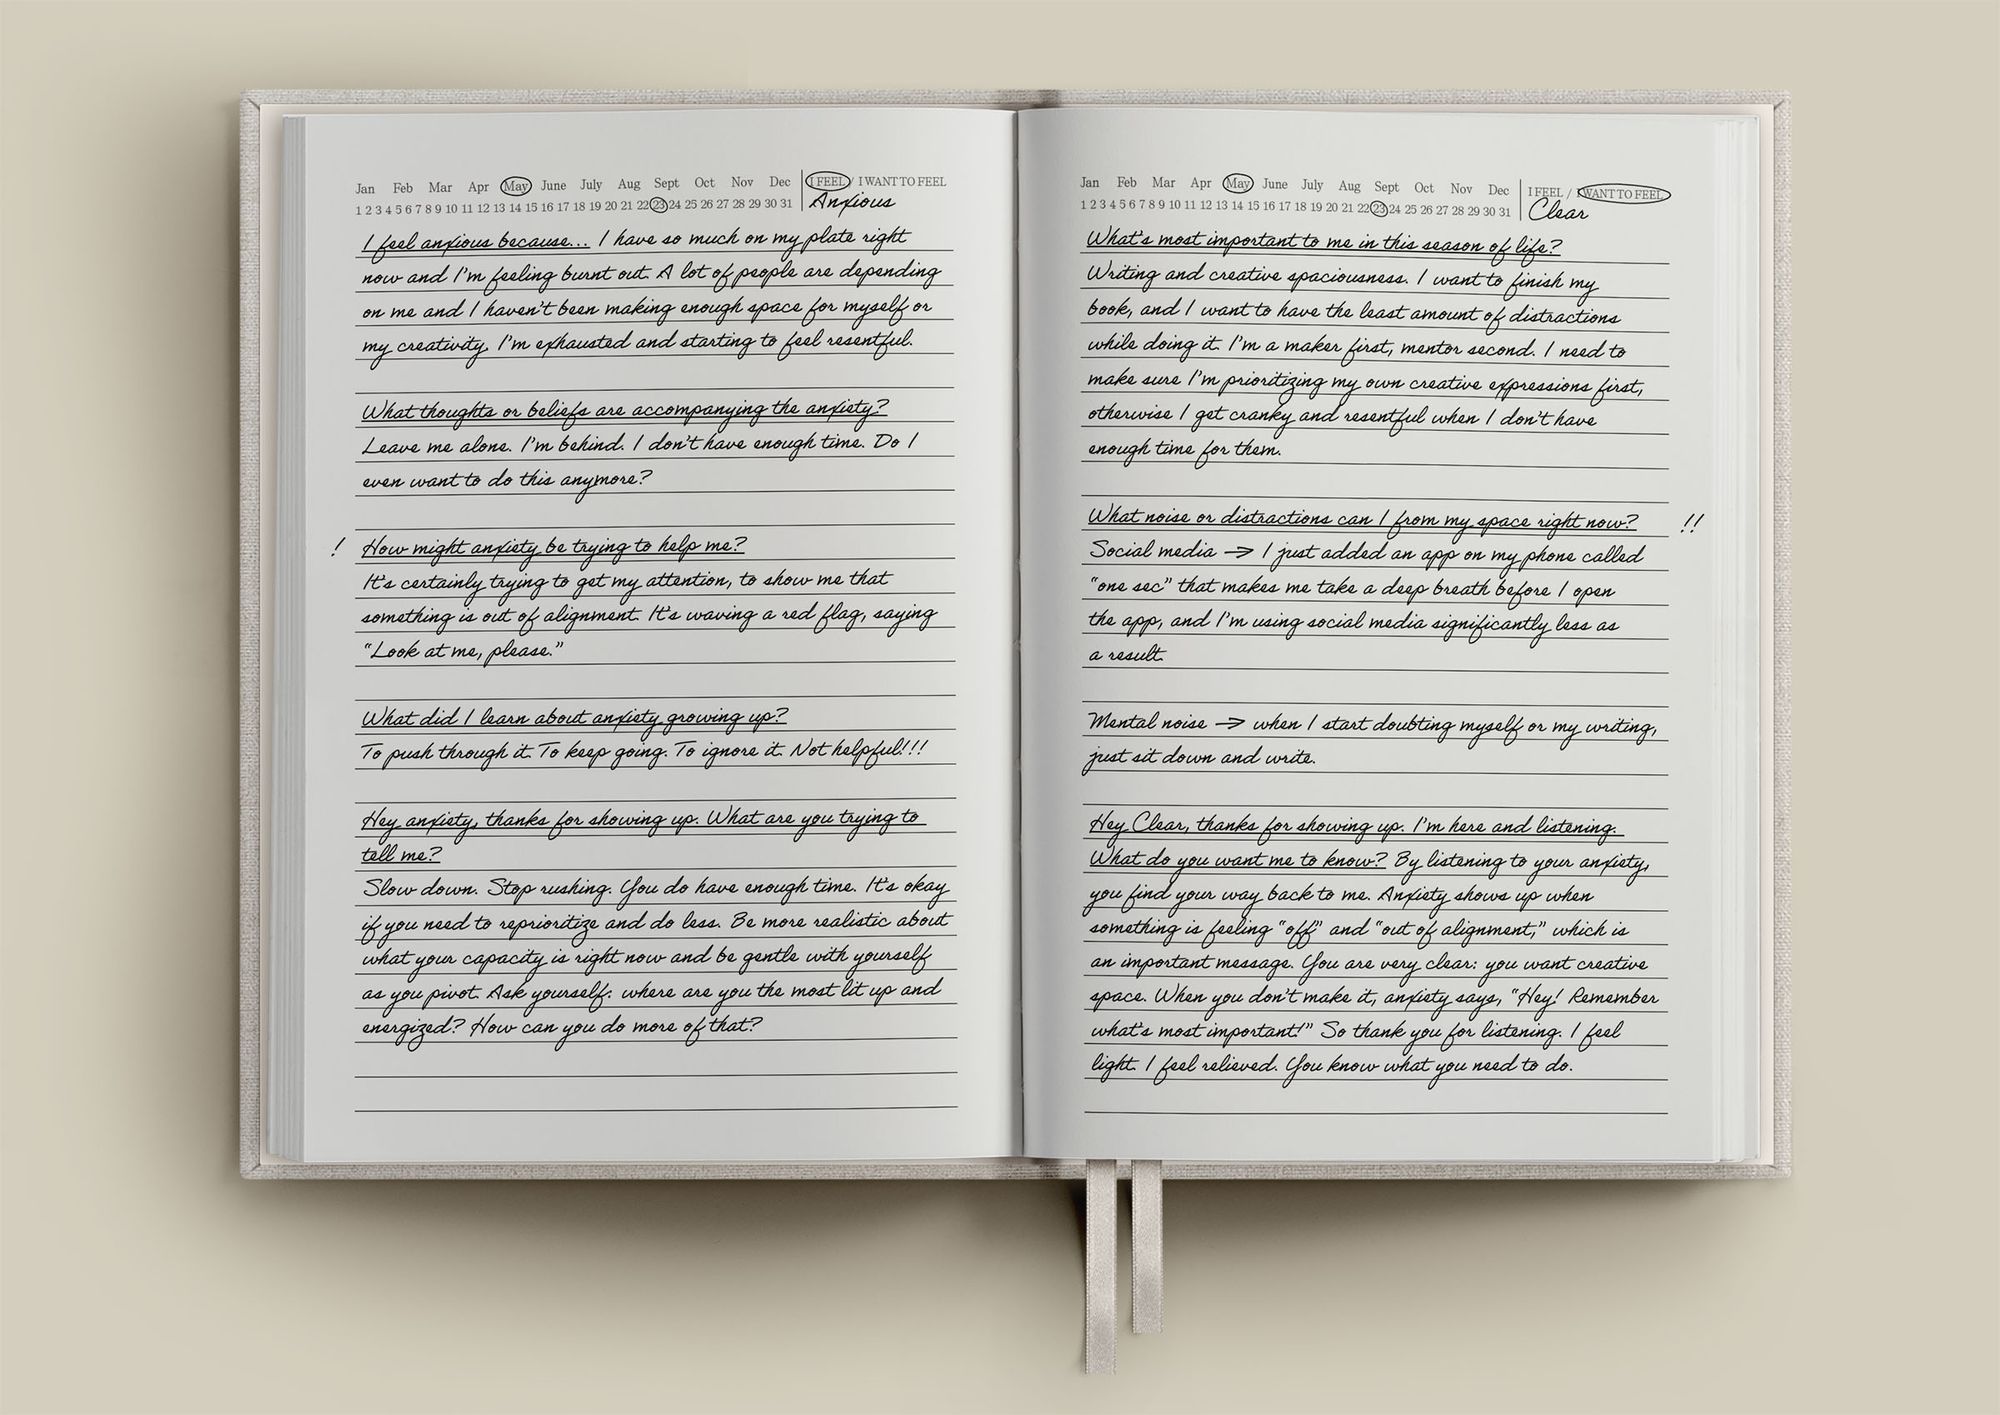 Jan Feb Mar Apr May June July Aug Sept Oct Nov Dec
1 2 3 4 5 6 7 8 9 10 11 12 13 14 15 16 17 18 19 20 21 22 23 24 25 26 27 28 29 30 31
I FEEL / I WANT TO FEEL
Anxious
I feel anxious because... I have so much on my plate right
now and I'm feeling burnt out. A lot of people are depending
on me and I haven't been making enough space for myself or
my creativity. I'm exhausted and starting to feel resentful.
What thoughts or beliefs are accompanying the anxiety?
Leave me alone. I'm behind. I don't have enough time. Do I
even want to do this anymore?
! How might anxiety be trying to help me?
It's certainly trying to get my attention, to show me that
something is out of alignment. It's waving a red flag, saying
“Look at me, please.”
What did I learn about anxiety growing up?
To push through it. To keep going. To ignore it. Not helpful!!!
Hey anxiety, thanks for showing up. What are you trying to
tell me?
Slow down. Stop rushing. You do have enough time. It's okay
if you need to reprioritize and do less. Be more realistic about
what your capacity is right now and be gentle with yourself
as you pivot. Ask yourself: where are you the most lit up and
energized? How can you do more of that?
Jan Feb Mar Apr May June July Aug Sept Oct Nov Dec
1 2 3 4 5 6 7 8 9 10 11 12 13 14 15 16 17 18 19 20 21 22 23 24 25 26 27 28 29 30 31
I FEEL / I WANT TO FEEL
Clear
What's most important to me in this season of life?
Writing and creative spaciousness. I want to finish my
book, and I want to have the least amount of distractions
while doing it. I'm a maker first, mentor second. I need to
make sure I'm prioritizing my own creative expressions first,
otherwise I get cranky and resentful when I don't have
enough time for them.
What noise or distractions can I from my space right now? !!
Social media → I just added an app on my phone called
“one sec” that makes me take a deep breath before I open
the app, and I'm using social media significantly less as
a result.
Mental noise → when I start doubting myself or my writing,
just sit down and write.
Hey Clear, thanks for showing up. I'm here and listening.
What do you want me to know? By listening to your anxiety,
you find your way back to me. Anxiety shows up when
something is feeling “off” and “out of alignment,” which is
an important message. You are very clear: you want creative
space. When you don't make it, anxiety says, “Hey! Remember
what's most important!” So thank you for listening. I feel
light. I feel relieved. You know what you need to do.